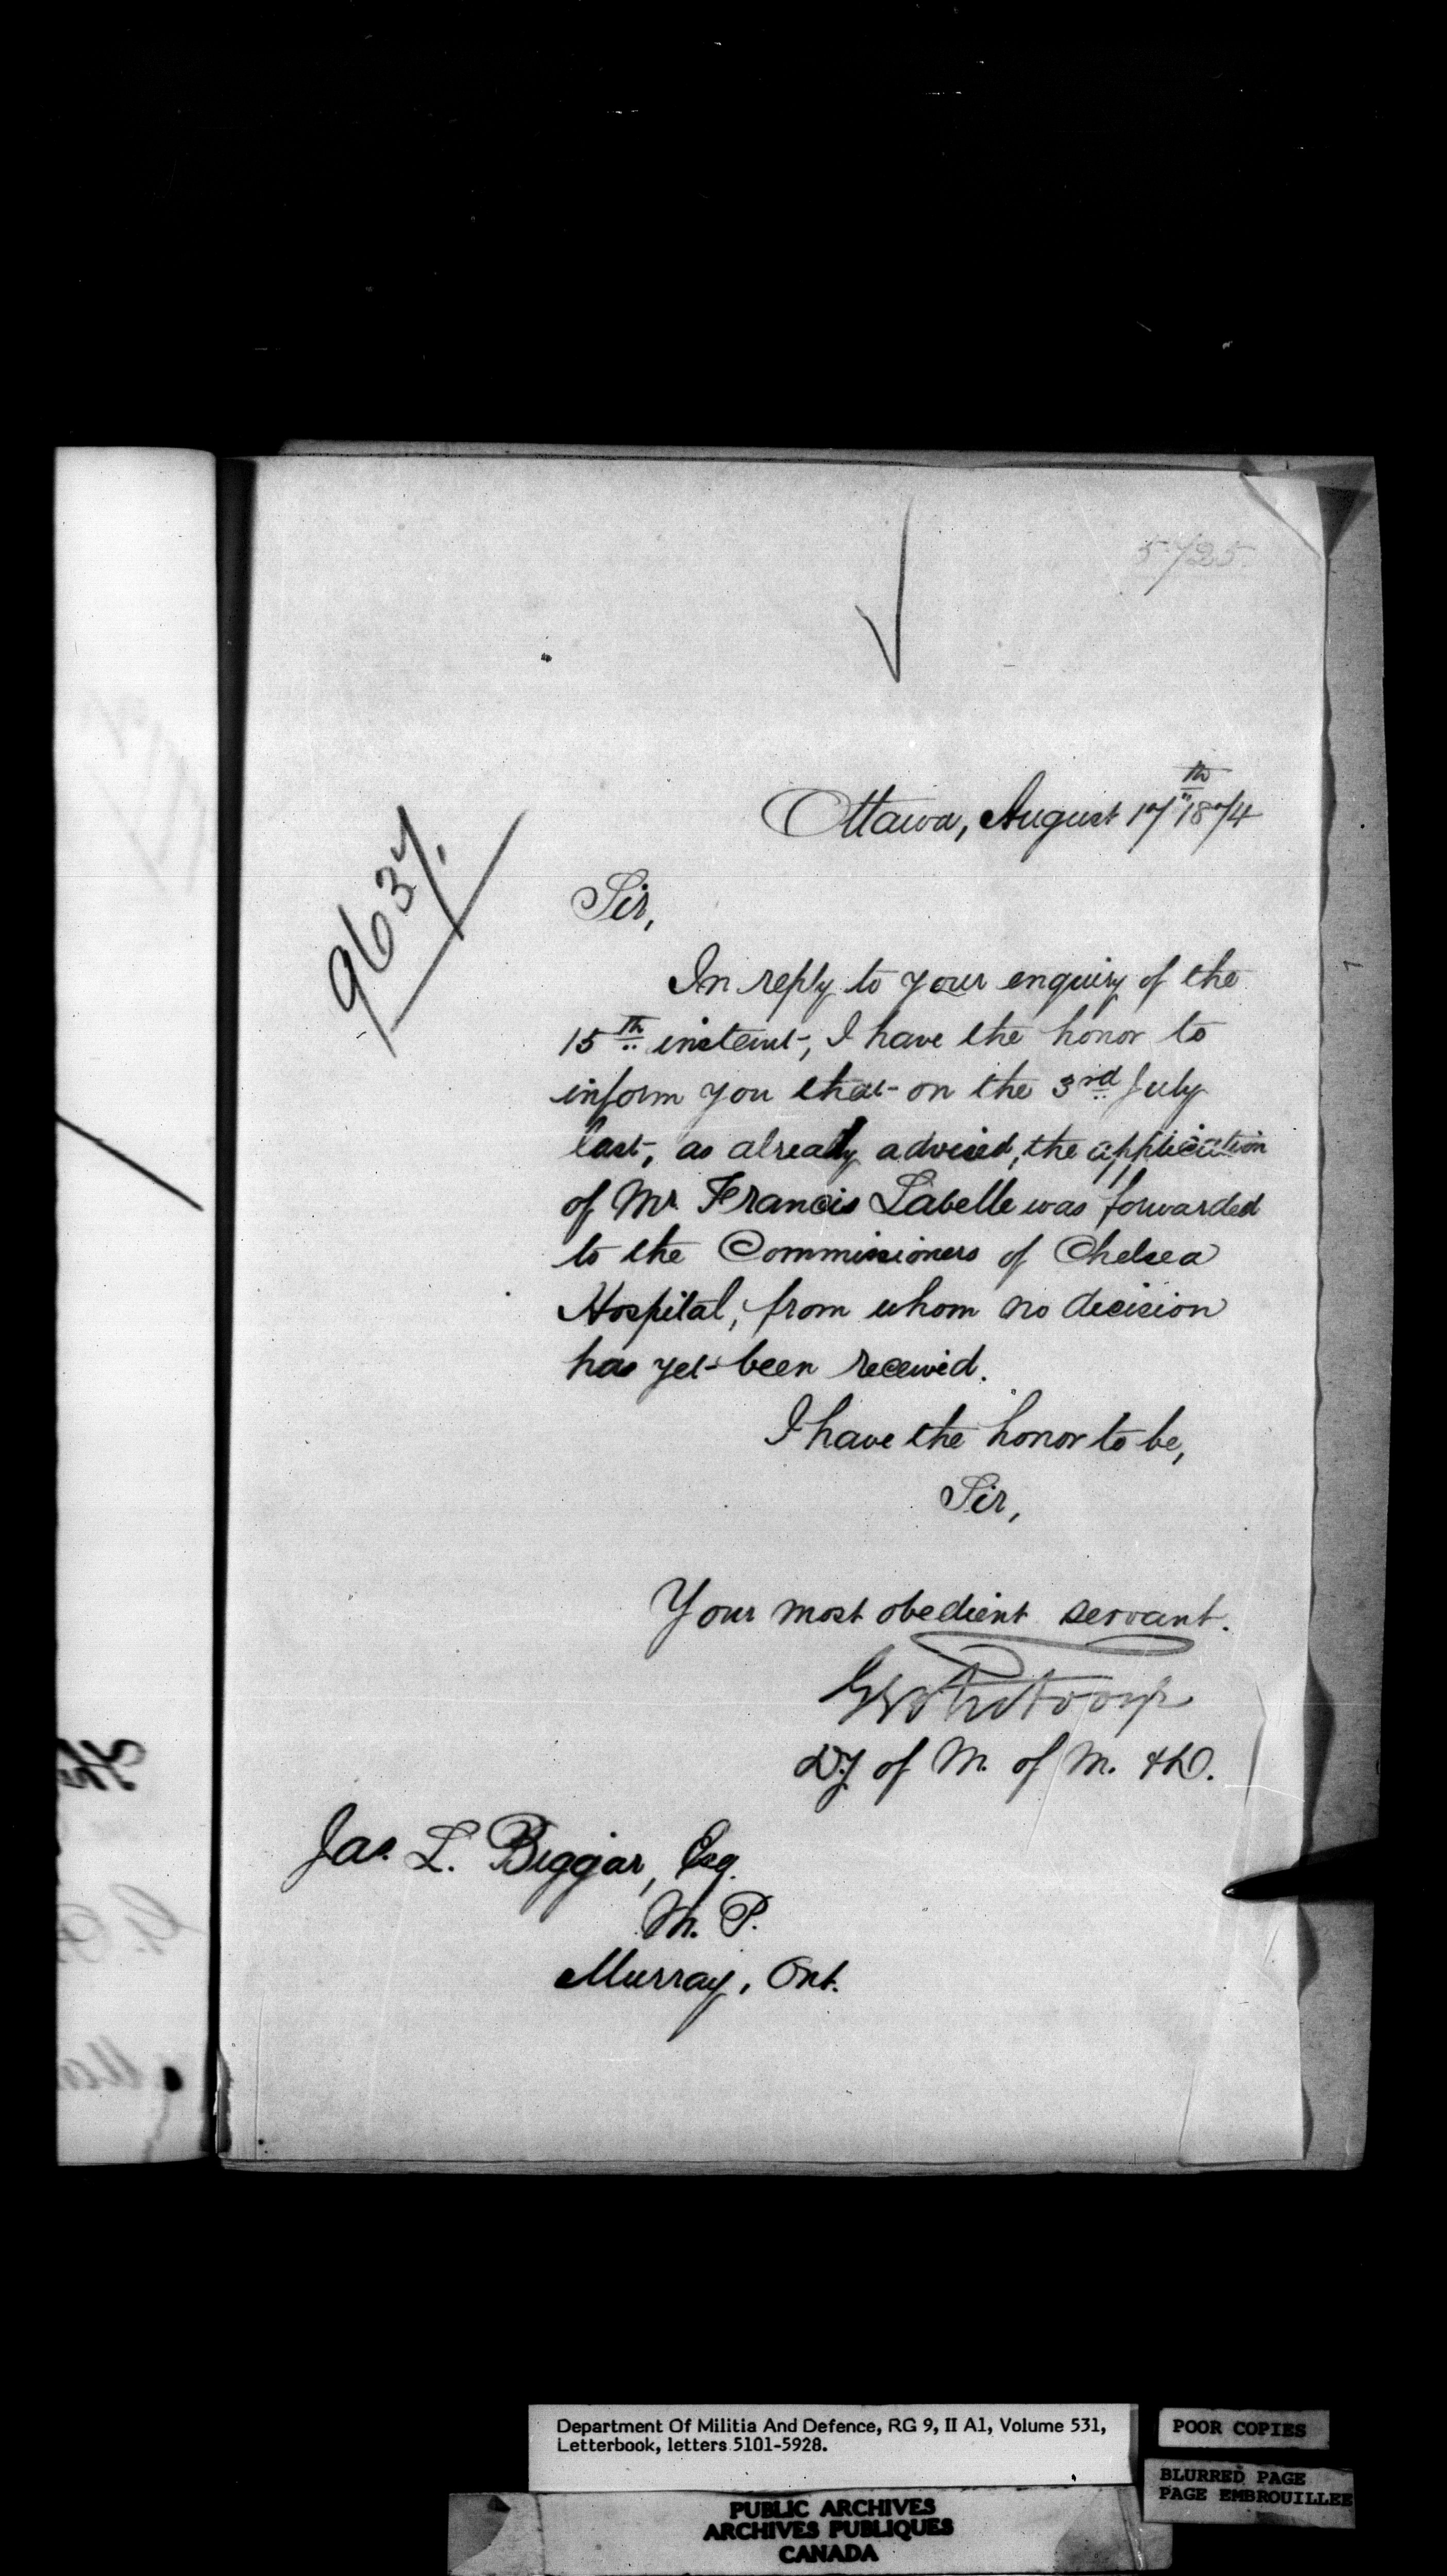 5725
Ottawa, August 17th 1874
9637.
Sir,
In reply to your enquiry of the
15th instant, I have the honor to
inform you that on the 3rd July
last, as already advised, the application
of Mr. Francis Labelle was forwarded
to the Commissioners of Chelsea
Hospital, from whom no decision
has yet been received.
I have the honor to be,
Sir,
Your most obedient servant.
Dy of M. of M. & D.
Jas. L. Biggar, Esq.
M. P.
Murray, Ont.
Department Of Militia And Defence, RG 9, II A1, Volume 531,
Letterbook, letters 5101-5928.
POOR COPIES
BLURRED PAGE
PAGE EMBROUILLEE
PUBLIC ARCHIVES
ARCHIVES PUBLIQUES
CANADA